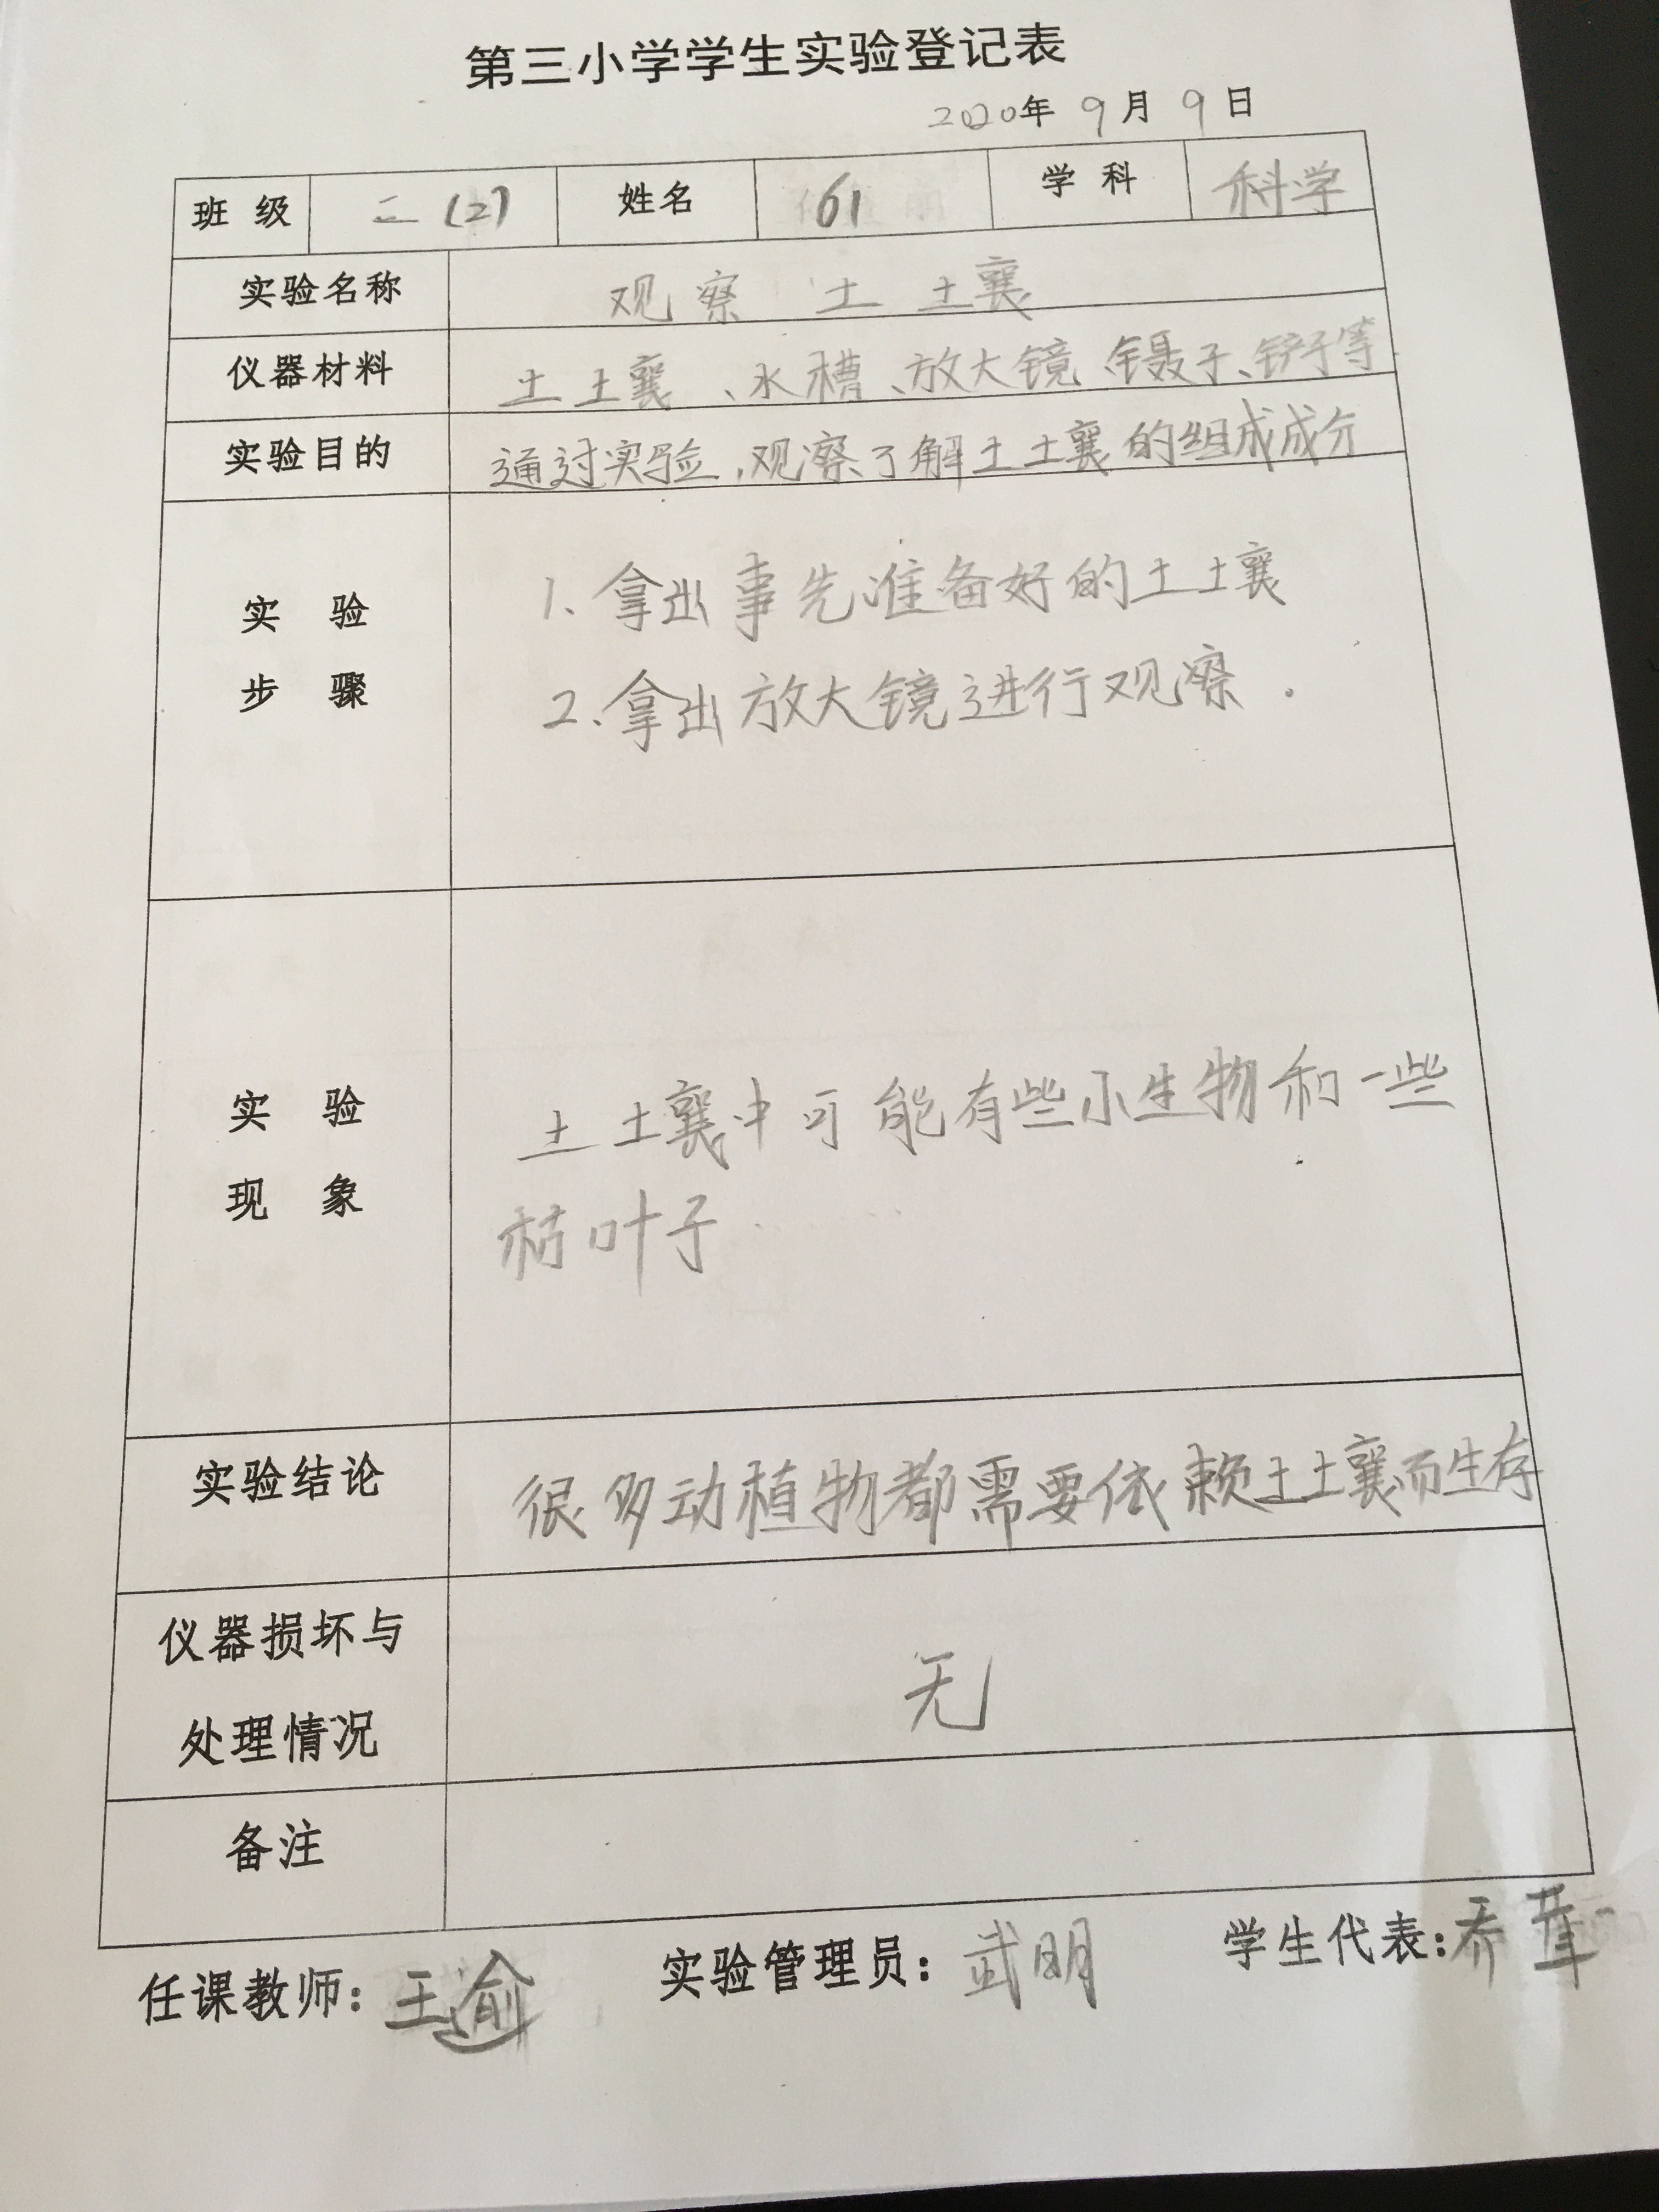 第三小学学生实验登记表
2020年 9月 9日
班 级 二(2) 姓名 61 学 科 科学
实验名称 观察 土壤
仪器材料 土壤、水槽、放大镜 镊子、铲子等
实验目的 通过实验,观察了解土壤的组成成分
实 验
步 骤
1、拿出事先准备好的土壤
2、拿出放大镜进行观察.
实 验
现 象
土壤中可能有些小生物和一些
枯叶子……
实验结论 很多动植物都需要依赖土壤而生存
仪器损坏与
处理情况
无
备注
任课教师: 王逾 实验管理员: 武明 学生代表: 乔